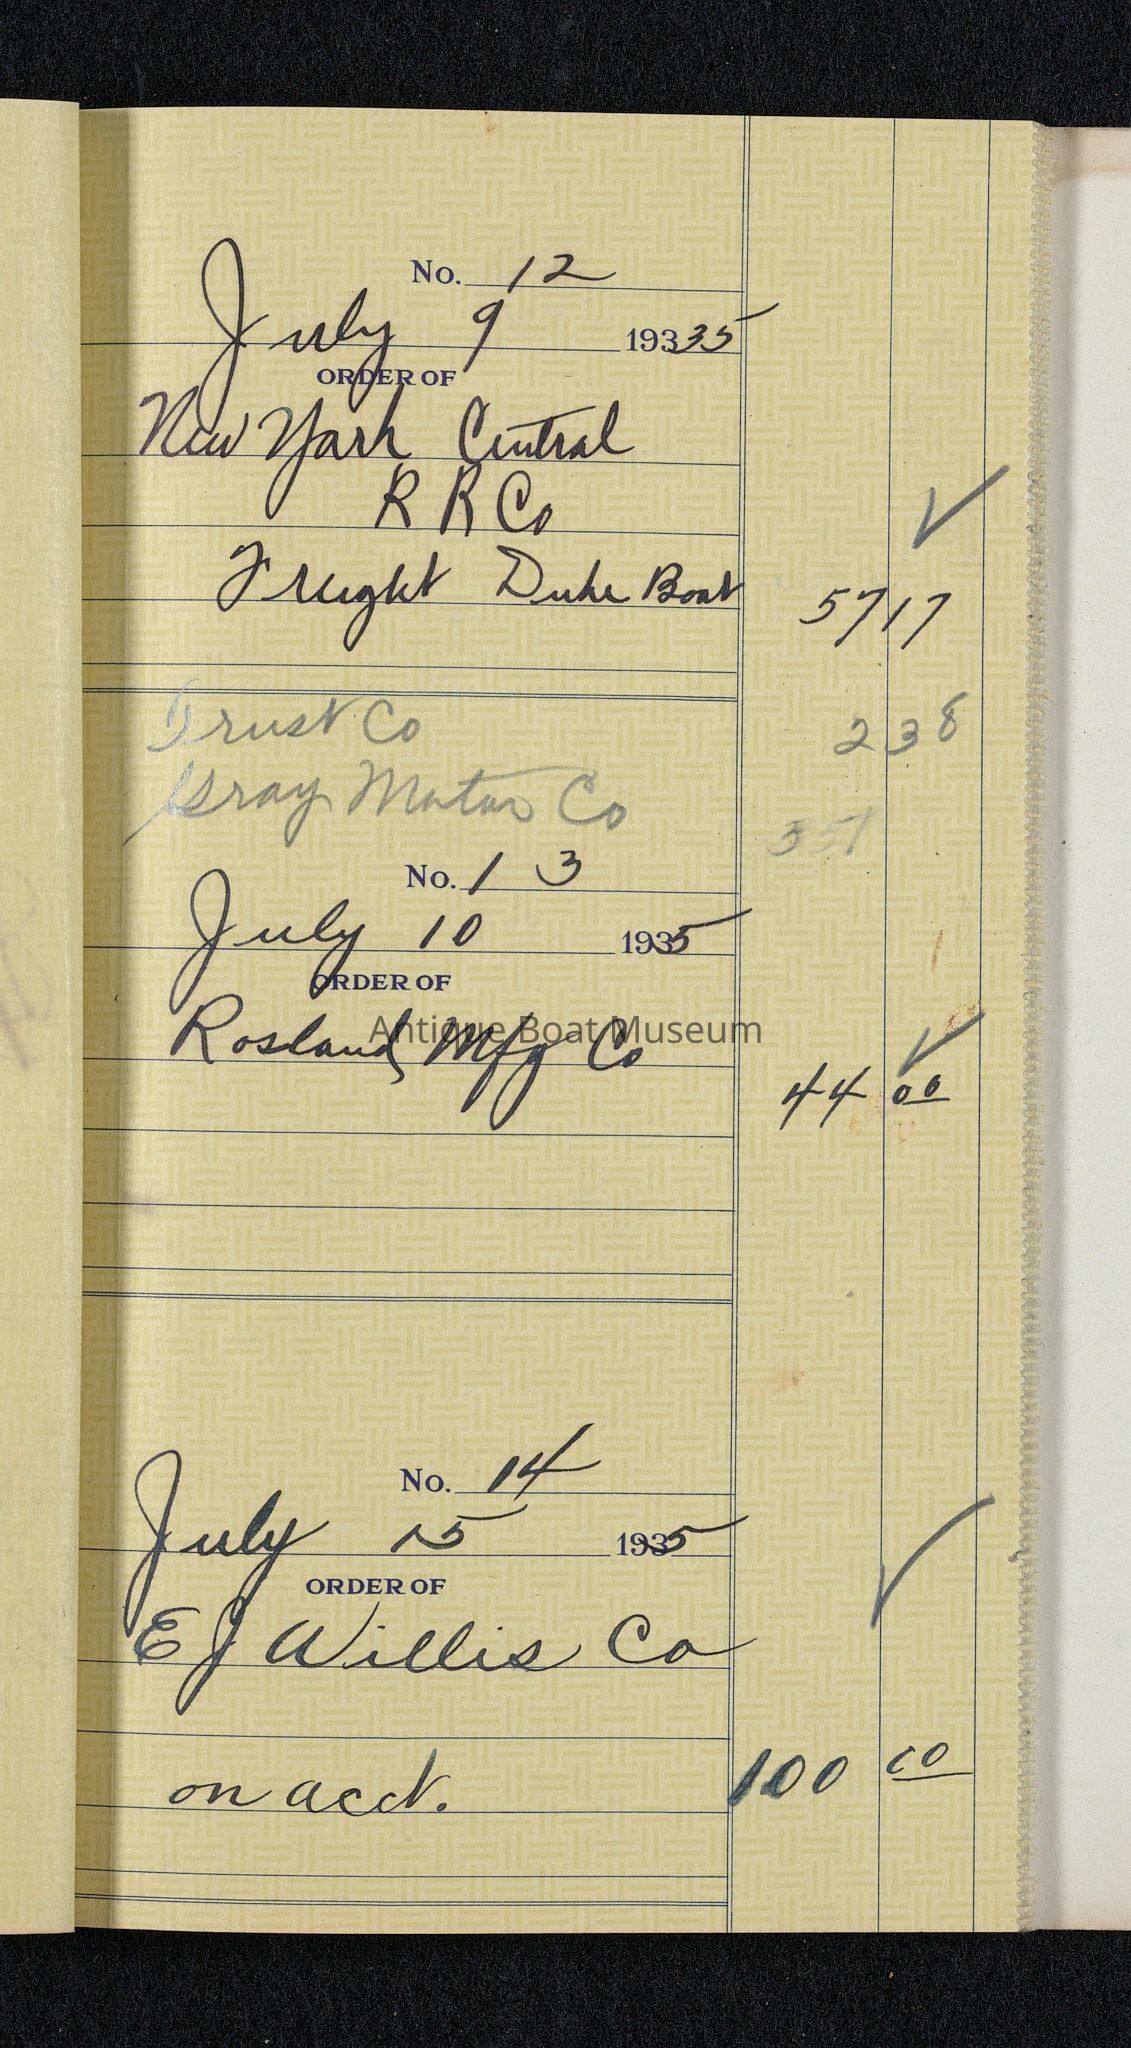 No. 12
July 9 19335
ORDER OF
New York Central
R R Co
✓
Freight Duke Boat 57 17
Trust Co 2 38
Gray Motor Co 351
No. 13
July 10 1935
ORDER OF
Antique Boat Museum
Rosland Mfg Co
✓
44 00
No. 14
July 15 1935
ORDER OF
E J Willis Co
✓
on acct. 100 00